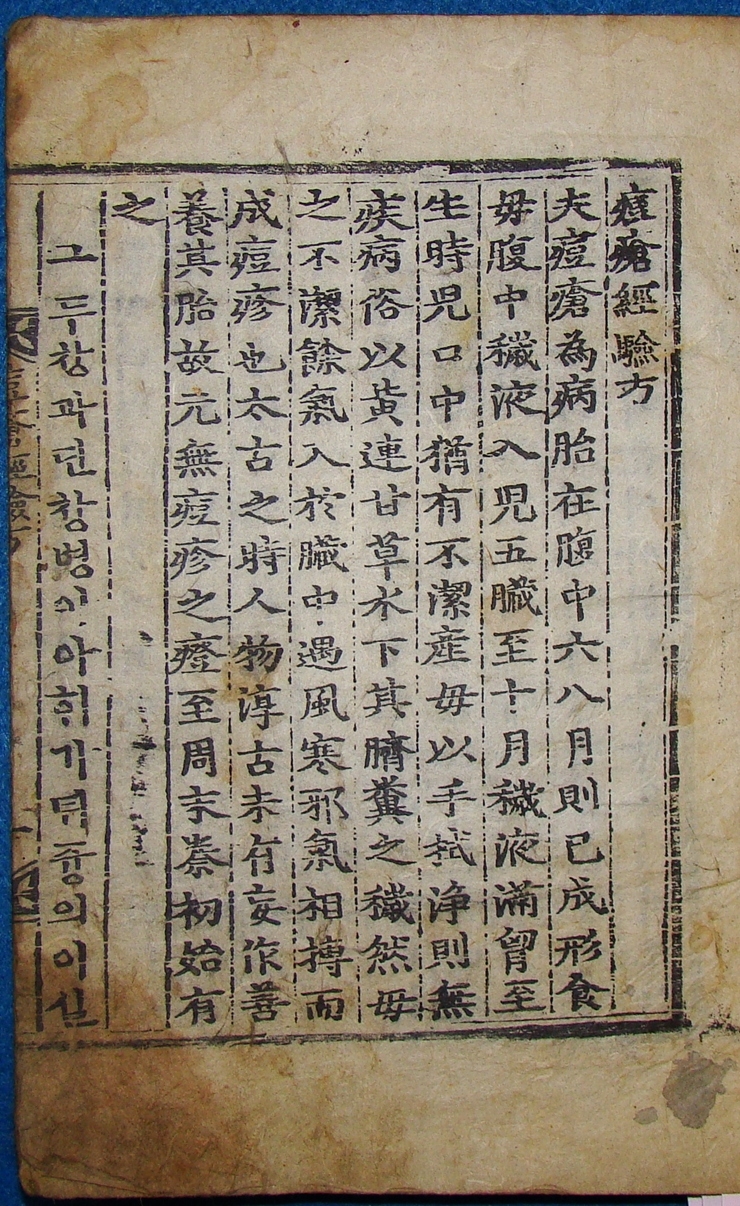 痘瘡經驗方
夫痘瘡為病胎在腹中六八月則已成形食
毋腹中穢液入児五臓至十月穢液滿胃至
生時児口中猶有不潔産毋以手拭浄則無
疾病俗以黄連甘草水下其臍糞之穢然毋
之不潔餘氣入於臓中遇風寒邪氣相搏而
成痘疹也太古之時人物淳古未有妄作善
養其胎故元無痘疹之證至周末秦初始有
之
그두창과단창병이아히가뒤즁의이실
痘瘡經驗方